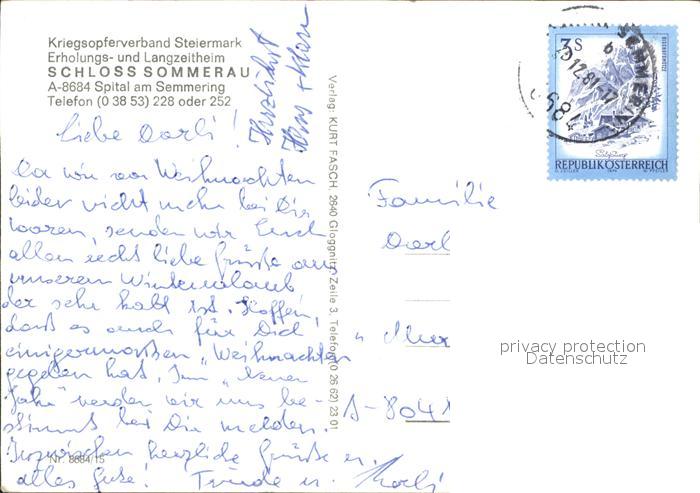 Kriegsopferverband Steiermark
Erholungs- und Langzeitheim
SCHLOSS SOMMERAU
A-8684 Spital am Semmering
Telefon (0 38 53) 228 oder 252
Liebe Dorli!
Da wir vor Weihnachten
leider nicht mehr bei Dir
waren, senden wir Euch
allen recht liebe Grüße aus
unserem Winterurlaub
der sehr kalt ist. Hoffen,
daß es auch für Dich
einigermaßen "Weihnachten"
gegeben hat. Im "Neuen
Jahr" werden wir uns be-
stimmt bei Dir melden.
Inzwischen herzliche Grüße u.
alles Gute! Trude u.
Herzlichst
Verlag: KURT FASCH, 2640 Gloggnitz, Zeile 3, Telefon (0 26 62) 23 01
Nr. 8684/15
3 S
REPUBLIK ÖSTERREICH
8684
Familie
Dorl
A-8041
privacy protection
Datenschutz